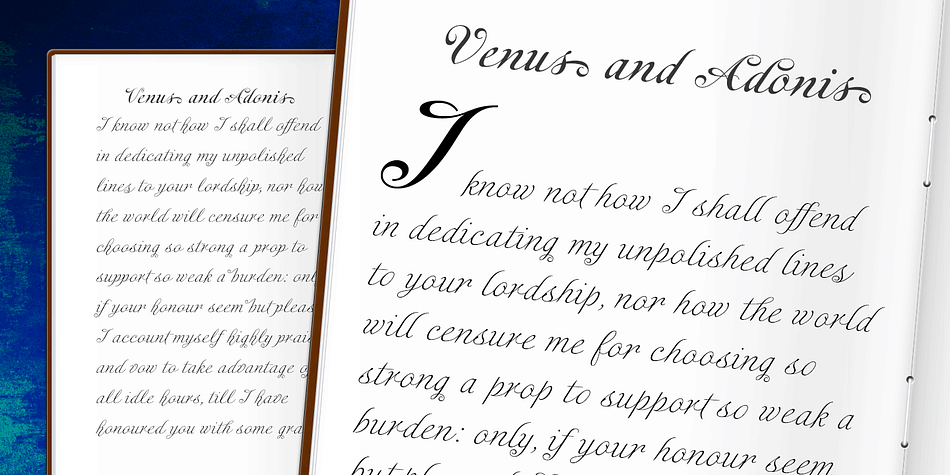 Venus and Adonis
I know not how I shall offend
in dedicating my unpolished
lines to your lordship, nor how
the world will censure me for
choosing so strong a prop to
support so weak a burden: only
if your honour seem but pleas
I account myself highly prai
and vow to take advantage of
all idle hours, till I have
honoured you with some gra
Venus and Adonis
I know not how I shall offend
in dedicating my unpolished lines
to your lordship, nor how the world
will censure me for choosing so
strong a prop to support so weak a
burden: only, if your honour seem